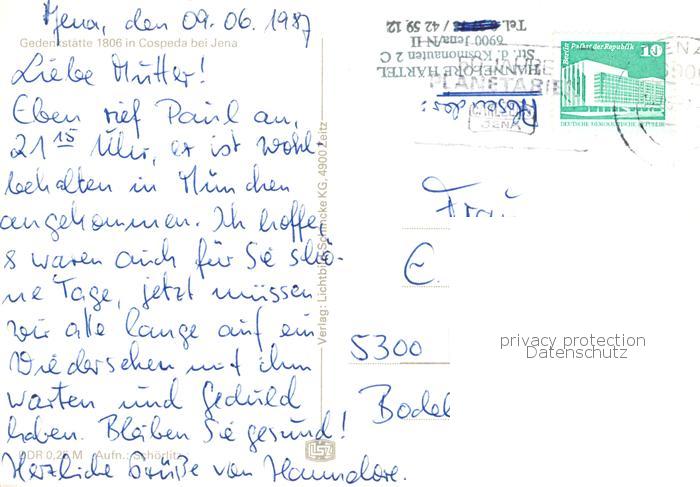 Jena, den 09. 06. 1987
Gedenkstätte 1806 in Cospeda bei Jena
Liebe Mutter!
Eben rief Paul an,
21 15 Uhr, er ist wohl-
behalten in München
angekommen. Ich hoffe,
s waren auch für Sie schö-
ne Tage, jetzt müssen
wir alle lange auf ein
Wiedersehen mit ihm
warten und Geduld
haben. Bleiben Sie gesund!
Herzliche Grüße von Hannelore.
DDR 0,25 M Aufn.: Schörlitz
Verlag: Lichtbild Schincke KG, 4900 Zeitz
HANNELORE HÄRTEL
Str. d. Kosmonauten 2 C
6900 Jena/N II
Tel. / 42 59 12
Absender:
PLANETARIUM
JENA
Berlin, Palast der Republik
10
DEUTSCHE DEMOKRATISCHE REPUBLIK
Frau
E.
5300
Bodel
privacy protection
Datenschutz